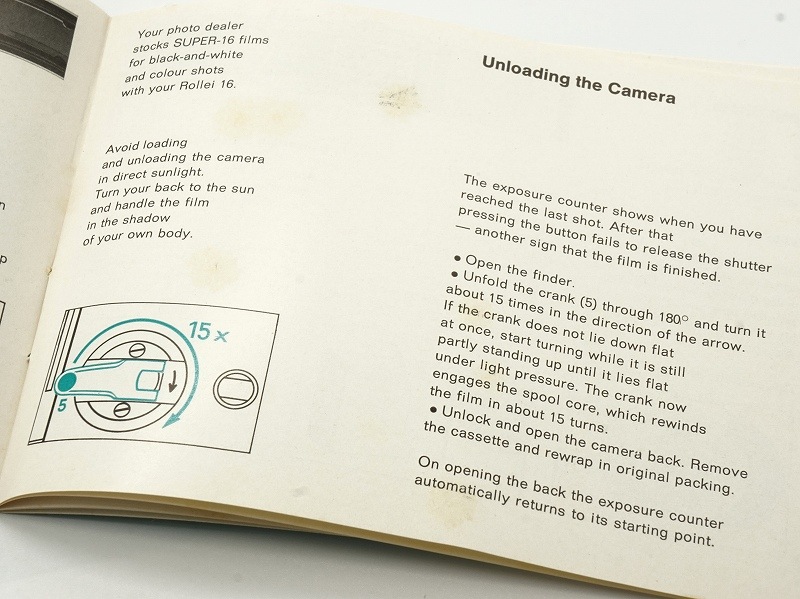 Your photo dealer
stocks SUPER-16 films
for black-and-white
and colour shots
with your Rollei 16.
Avoid loading
and unloading the camera
in direct sunlight.
Turn your back to the sun
and handle the film
in the shadow
of your own body.
15x
5
Unloading the Camera
The exposure counter shows when you have
reached the last shot. After that
pressing the button fails to release the shutter
— another sign that the film is finished.
● Open the finder.
● Unfold the crank (5) through 180° and turn it
about 15 times in the direction of the arrow.
If the crank does not lie down flat
at once, start turning while it is still
partly standing up until it lies flat
under light pressure. The crank now
engages the spool core, which rewinds
the film in about 15 turns.
● Unlock and open the camera back. Remove
the cassette and rewrap in original packing.
On opening the back the exposure counter
automatically returns to its starting point.